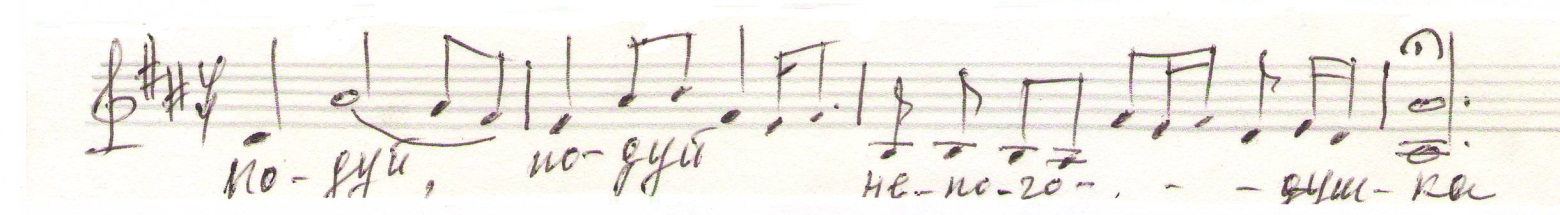 По - дуй, по - дуй не - по - го - . - - душ - ка